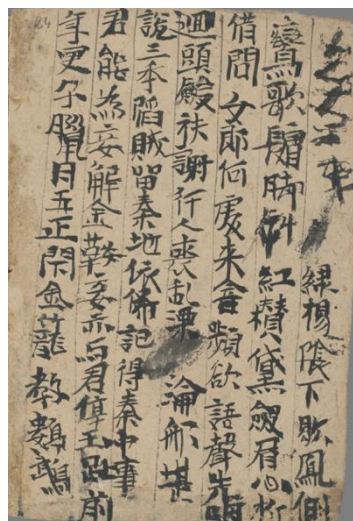 緑楊陰下歇鳳側
鸞歌鬢脚斜紅攢黛斂眉心折
借問女郎何處来含頻欲語聲先咽
迴頭殿袂謝行人喪乱漂淪舩堪
說三本陷賊留秦地依俙記得秦中事
君能為妾解金鞍妾亦与君停玉趾前
年更子臈月五正閇金蘢教鸚鵡